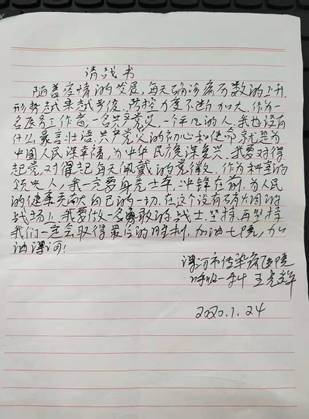 请战书
随着疫情的发展，每天确诊病历数的上升
形势越来越严峻，防控力度不断加大，作为一
名医务工作者，一名共产党员，一个平凡的人，我也没有
什么豪言壮语，共产党人的初心和使命就是为
中国人民谋幸福，为中华民族谋复兴，我要对得
起党，对得起每天佩戴的党徽，作为科室的
领头人，我一定要身先士卒，冲锋在前，为人民
的健康贡献自己的一切，在这个没有硝烟的
战场上，我要做一名勇敢的战士，坚持再坚持
我们一定会取得最后的胜利，加油七院，加
油漯河！
漯河市传染病医院
呼吸一科 王
2020.1.24